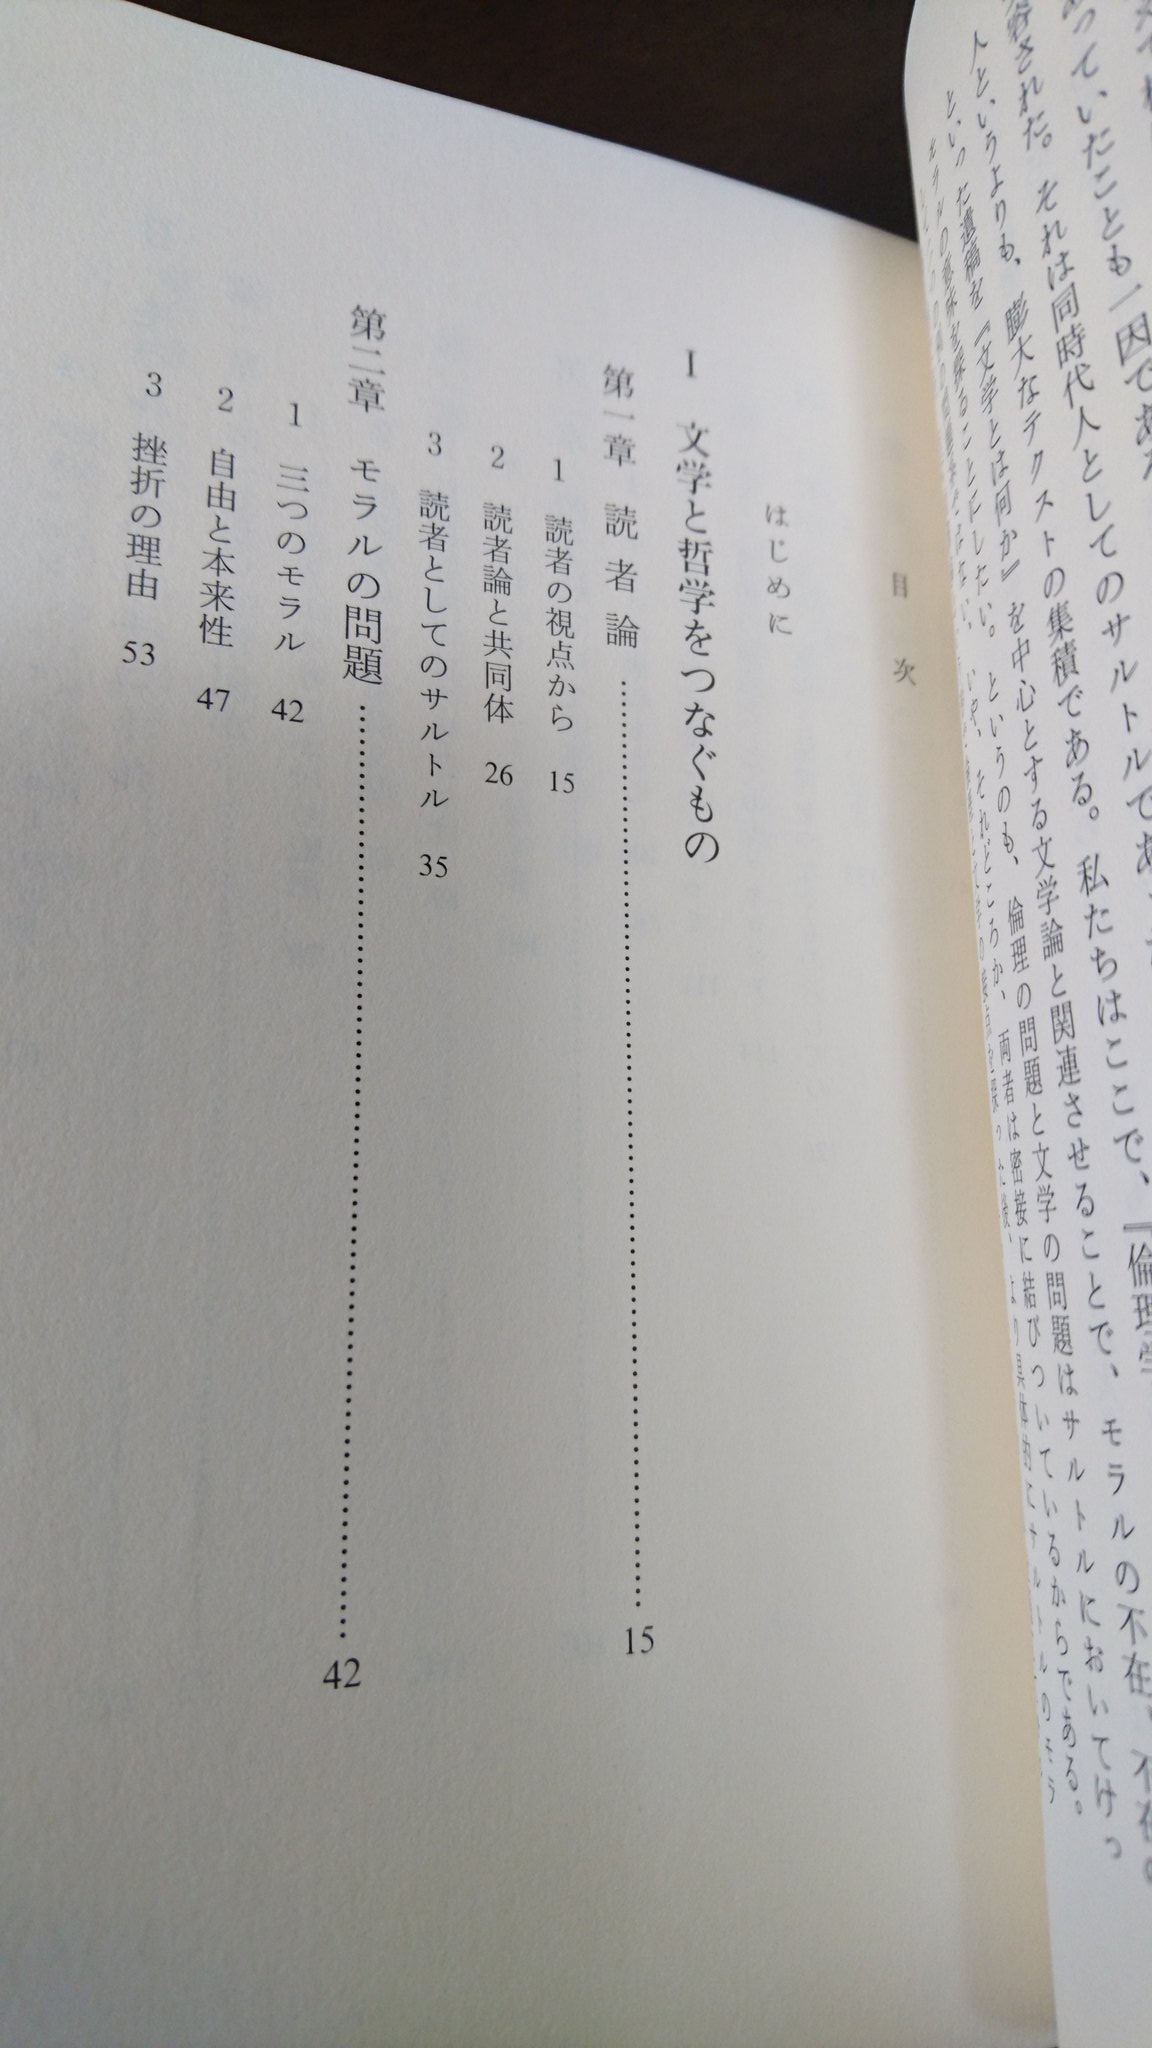 あっていたことも一因であ
容された。それは同時代人としてのサルトルであ
人というよりも、膨大なテクストの集積である。私たちはここで、『倫理学
といった遺稿を『文学とは何か』を中心とする文学論と関連させることで、モラルの不在、不在
モラルの意味を探ることにしたい。というのも、倫理の問題と文学の問題はサルトルにおいてけっ
いや、それどころか、両者は密接に結びついているからである。
目次
はじめに
I 文学と哲学をつなぐもの
第一章 読者論 15
1 読者の視点から 15
2 読者論と共同体 26
3 読者としてのサルトル 35
第二章 モラルの問題 42
1 三つのモラル 42
2 自由と本来性 47
3 挫折の理由 53